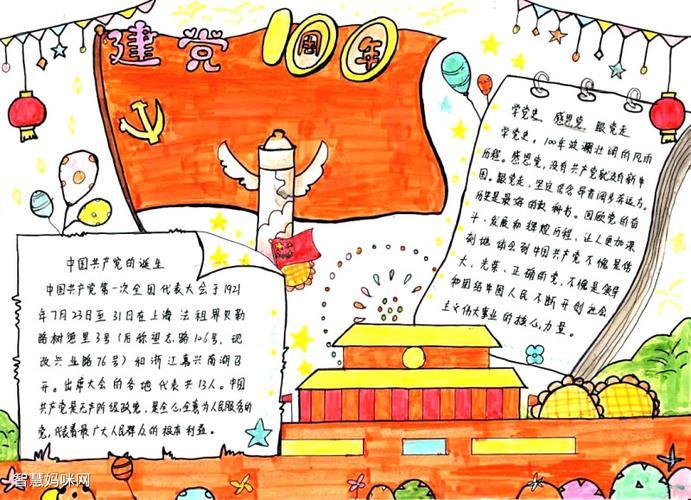 建党100周年
中国共产党的诞生
中国共产党第一次全国代表大会于1921
年7月23日至31日在上海法租界贝勒
路树德里3号(后称望志路106号,现
改兴业路76号)和浙江嘉兴南湖召
开。出席大会的各地代表共13人。中国
共产党是无产阶级政党,是全心全意为人民服务的
党,代表着最广大人民群众的根本利益。
学党史 感恩党 跟党走
学党史。100年波澜壮阔的风雨
历程。感恩党,没有共产党就没有新中
国。跟党走,坚定信念
历史是最好的教科书。回顾党的奋
斗、发展和辉煌历程,让人更加深
刻地体会到中国共产党不愧是伟
大、光荣、正确的党,不愧是领导
和团结中国人民不断开创社会
主义伟大事业的核心力量。
智慧妈咪网